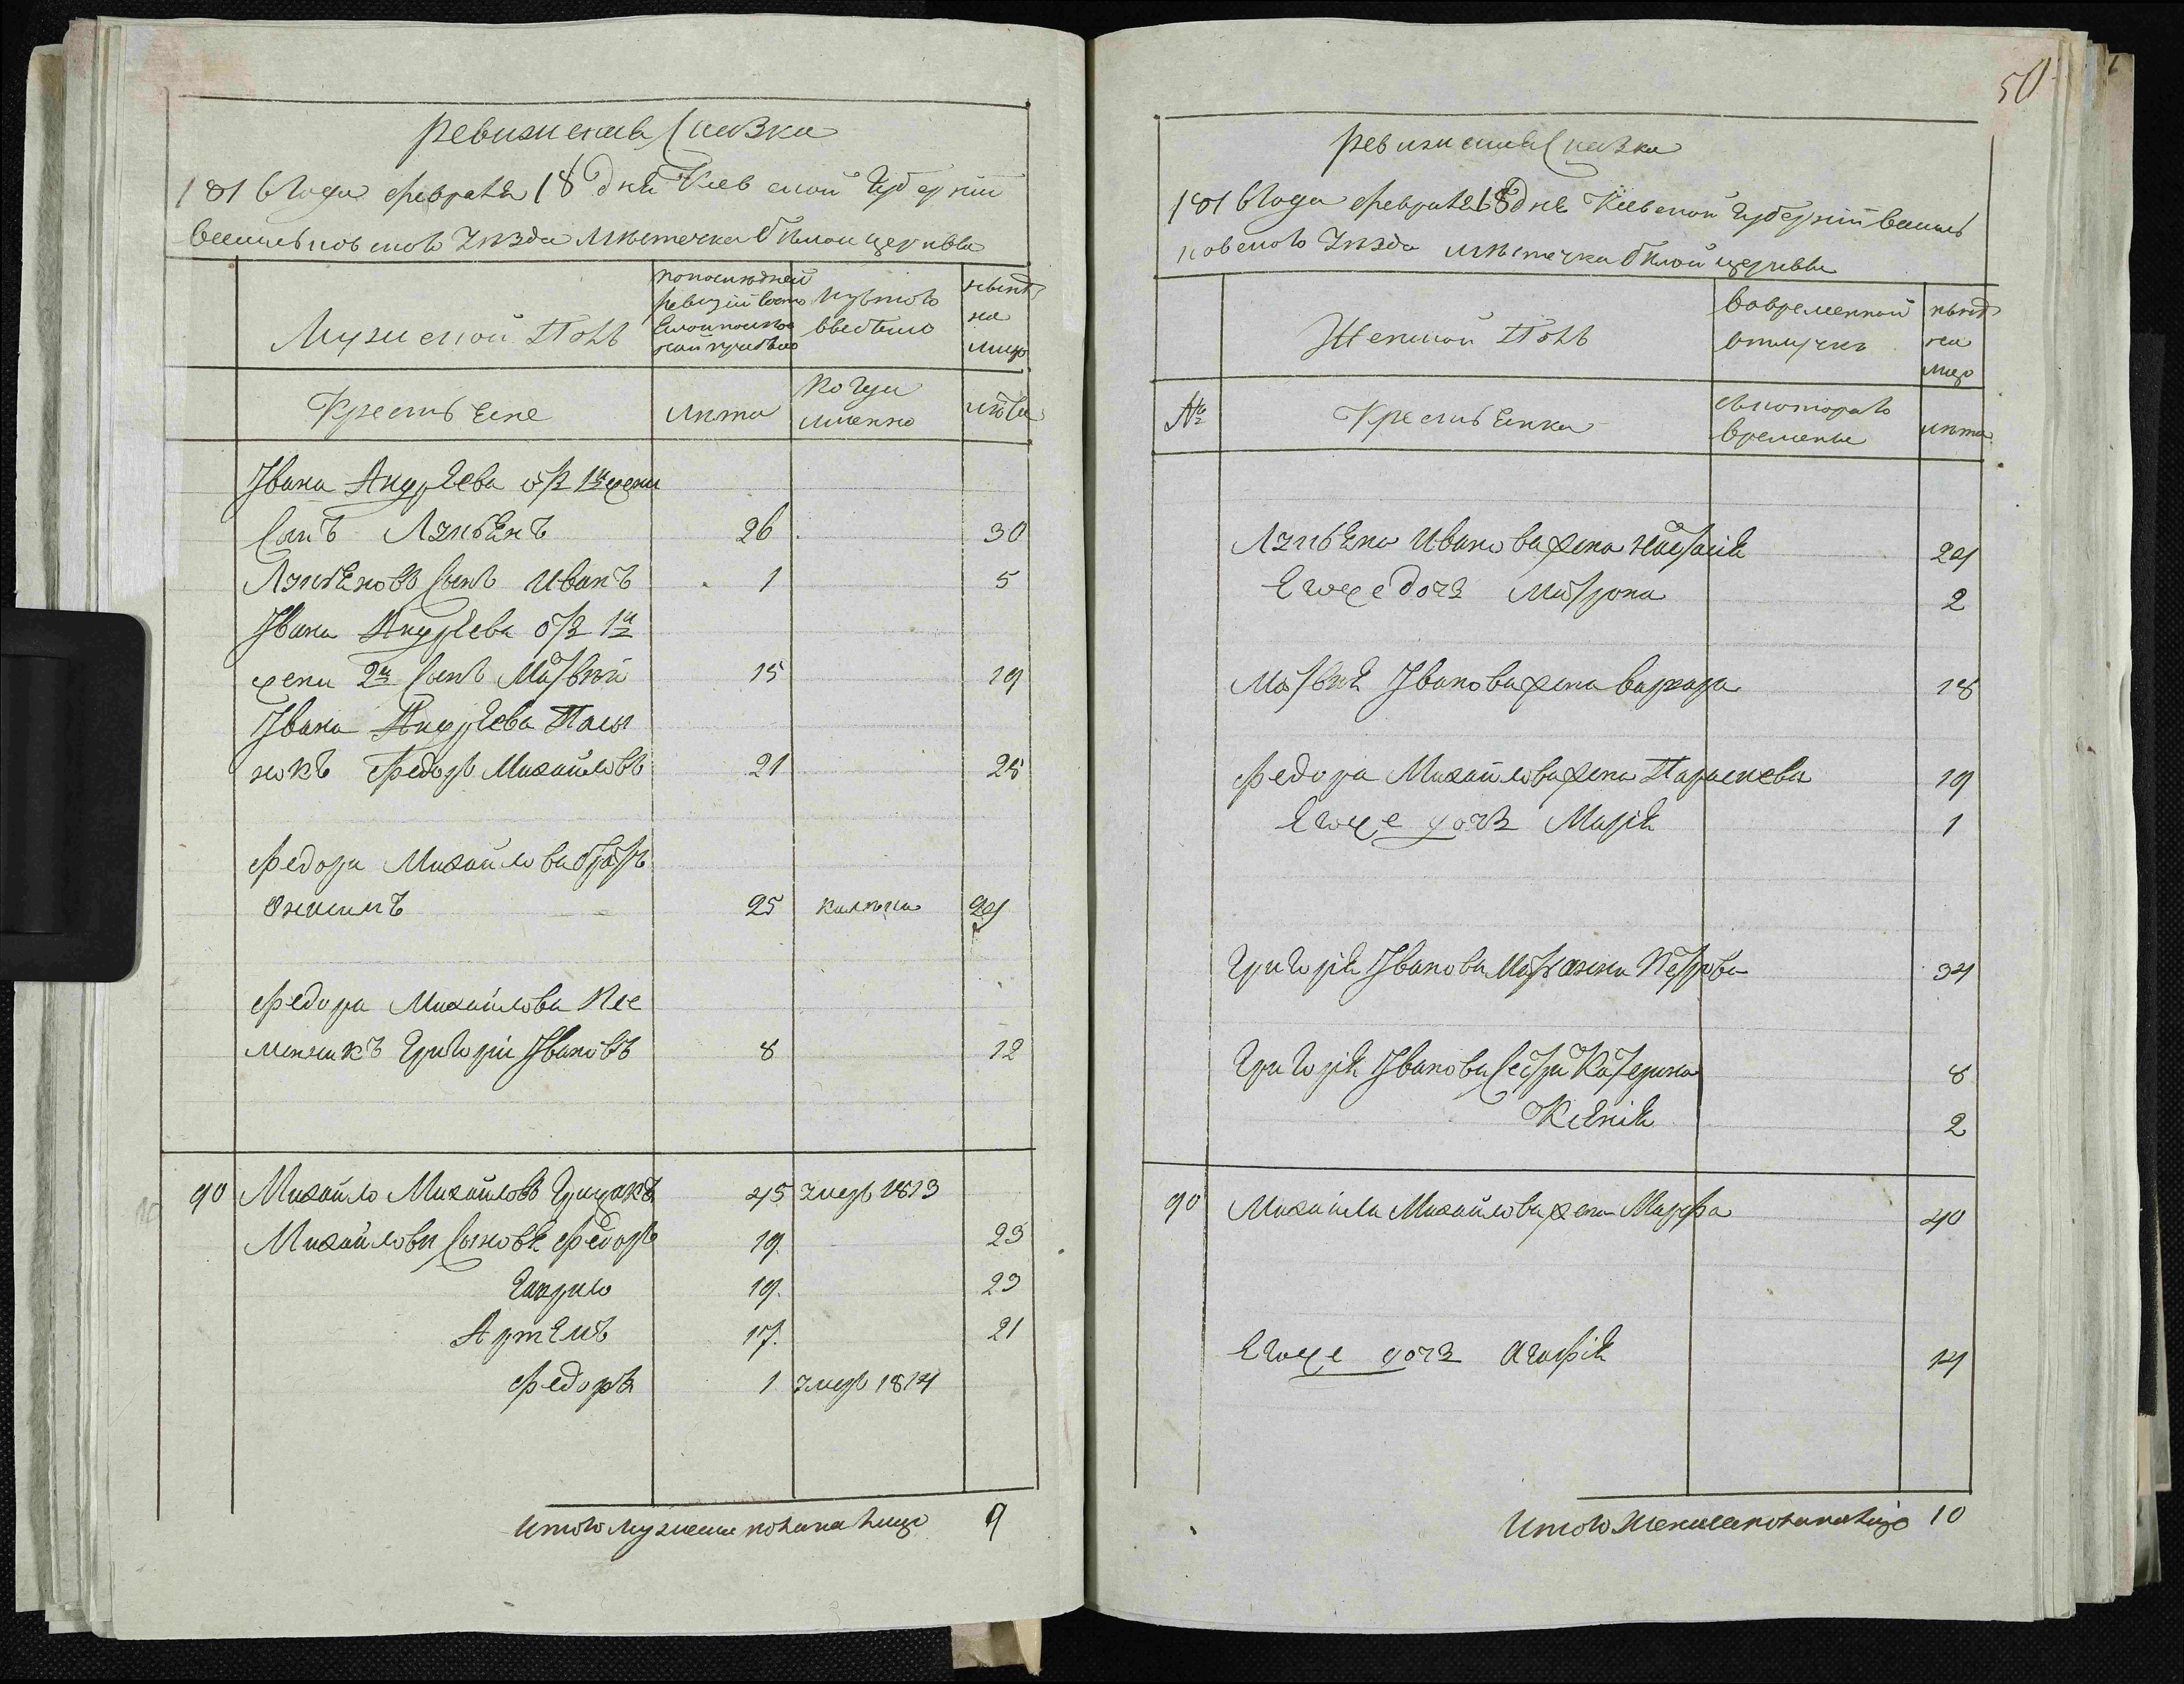 Ревижская Сказка
1816 года февраля 18 дня Киевской Губернии
васильковского Уезда местечка белой церквы
Мужеской Полъ
попоследней
ревизии состо
яло
изтого
выбыло
нынѣ
на
лицо
Крестьяне
лѣта
Когда
именно
лѣта
Ивана Андреева отъ 1й жены
Сынъ Лукьянъ 26 30
Лукьяновъ Сынъ Иванъ 1 5
Ивана Андреева отъ 1й
жены 2й Сынъ Матвѣй 15 19
Ивана Андреева Пасы
нокъ Федоръ Михайловъ 21 25
Федора Михайлова братъ
Онисимъ 25 калѣка 29
Федора Михайлова Пле
менникъ Григорій Ивановъ 8 12
90 Михайло Михайловъ Грицакъ 45 умеръ 1813
Михайловы Сыновя Федоръ 19 23
Гаврило 19. 23
Артемъ 17. 21
Федоръ 1 умеръ 1814
Итого мужеска пола на лицо 9
50
Ревижская Сказка
1816 года февраля 18 дня Киевской Губернии Василь
ковского Уезда местечка белой церквы
Женской Полъ
Вовременной
отлучкѣ
нынѣ
на
лицо
№
Крестьянки
съкоторого
времены
лѣта
Лукьяна Иванова жена Настасия 24
Егоже дочь Матрона 2
Матвѣя Иванова жена варвара 18
Федора Михайлова жена Параскева 19
Егоже дочь Мария 1
Григорія Иванова Мать анна Петрова 34
Григорія Иванова Сестра Катерина 8
Ксения 2
90 Михайла Михайлова жена Марфа 40
Егоже дочь агафия 14
Итого женска пола на лицо 10